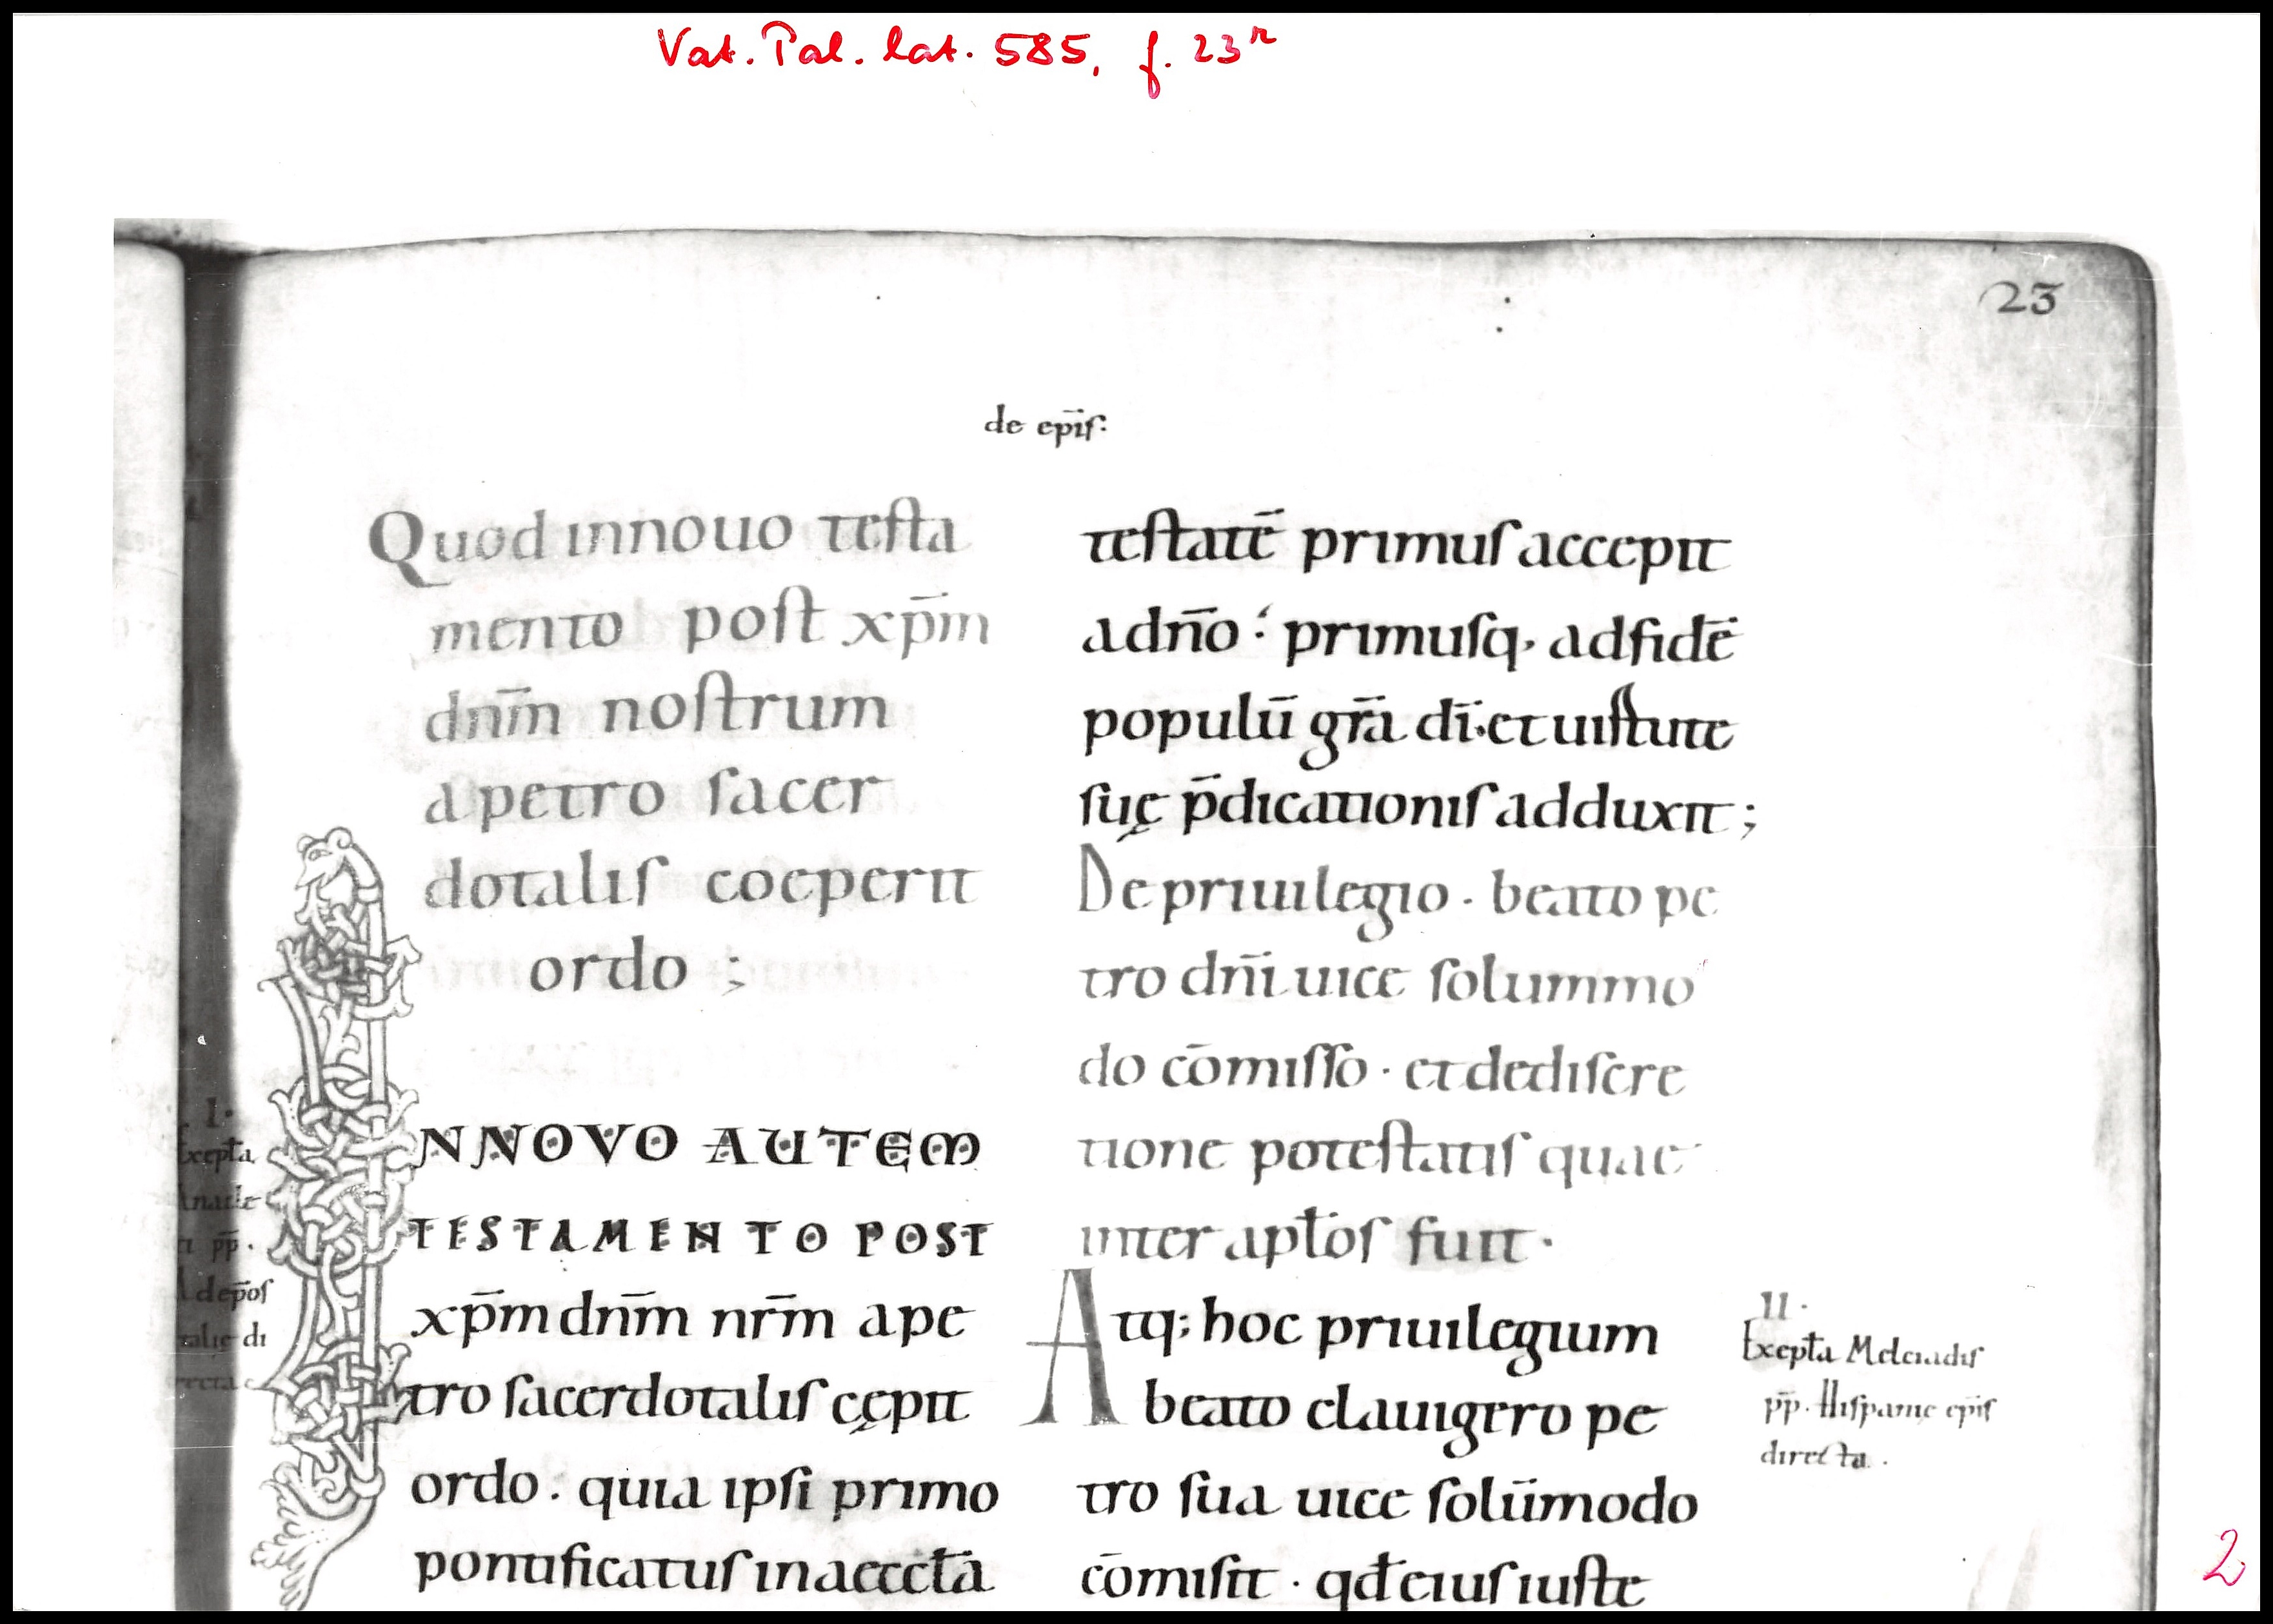 Vat. Pal. lat. 585, f. 23r
23
de ep̅is:
Quod innouo testa
mento post xp̅m
dnm̅ nostrum
a petro sacer
dotalis coeperit
ordo ;
NNOVO AUTEM
TESTAMENTO POST
xp̅m dnm̅ nrm̅ ape
tro sacerdotalis cępit
ordo. quia ipsi primo
pontificatus in aeccła
I.
Excepta
pp̅.
di
testatē primus accepit
adn̅o: primusq, ad fidē
populū gra̅ di̅. et
suę p̅dicationis adduxit;
De priuilegio. beato pe
tro dn̅i uice solummo
do cōmisso. et de discre
tione potestatis quae
inter apłos fuit.
Atq; hoc priuilegium
beato clauigero pe
tro sua uice solūmodo
cōmisit. qđ eius iuste
II.
Excepta Melciadis
pp̅. Hispanie ep̅is
directa.
2